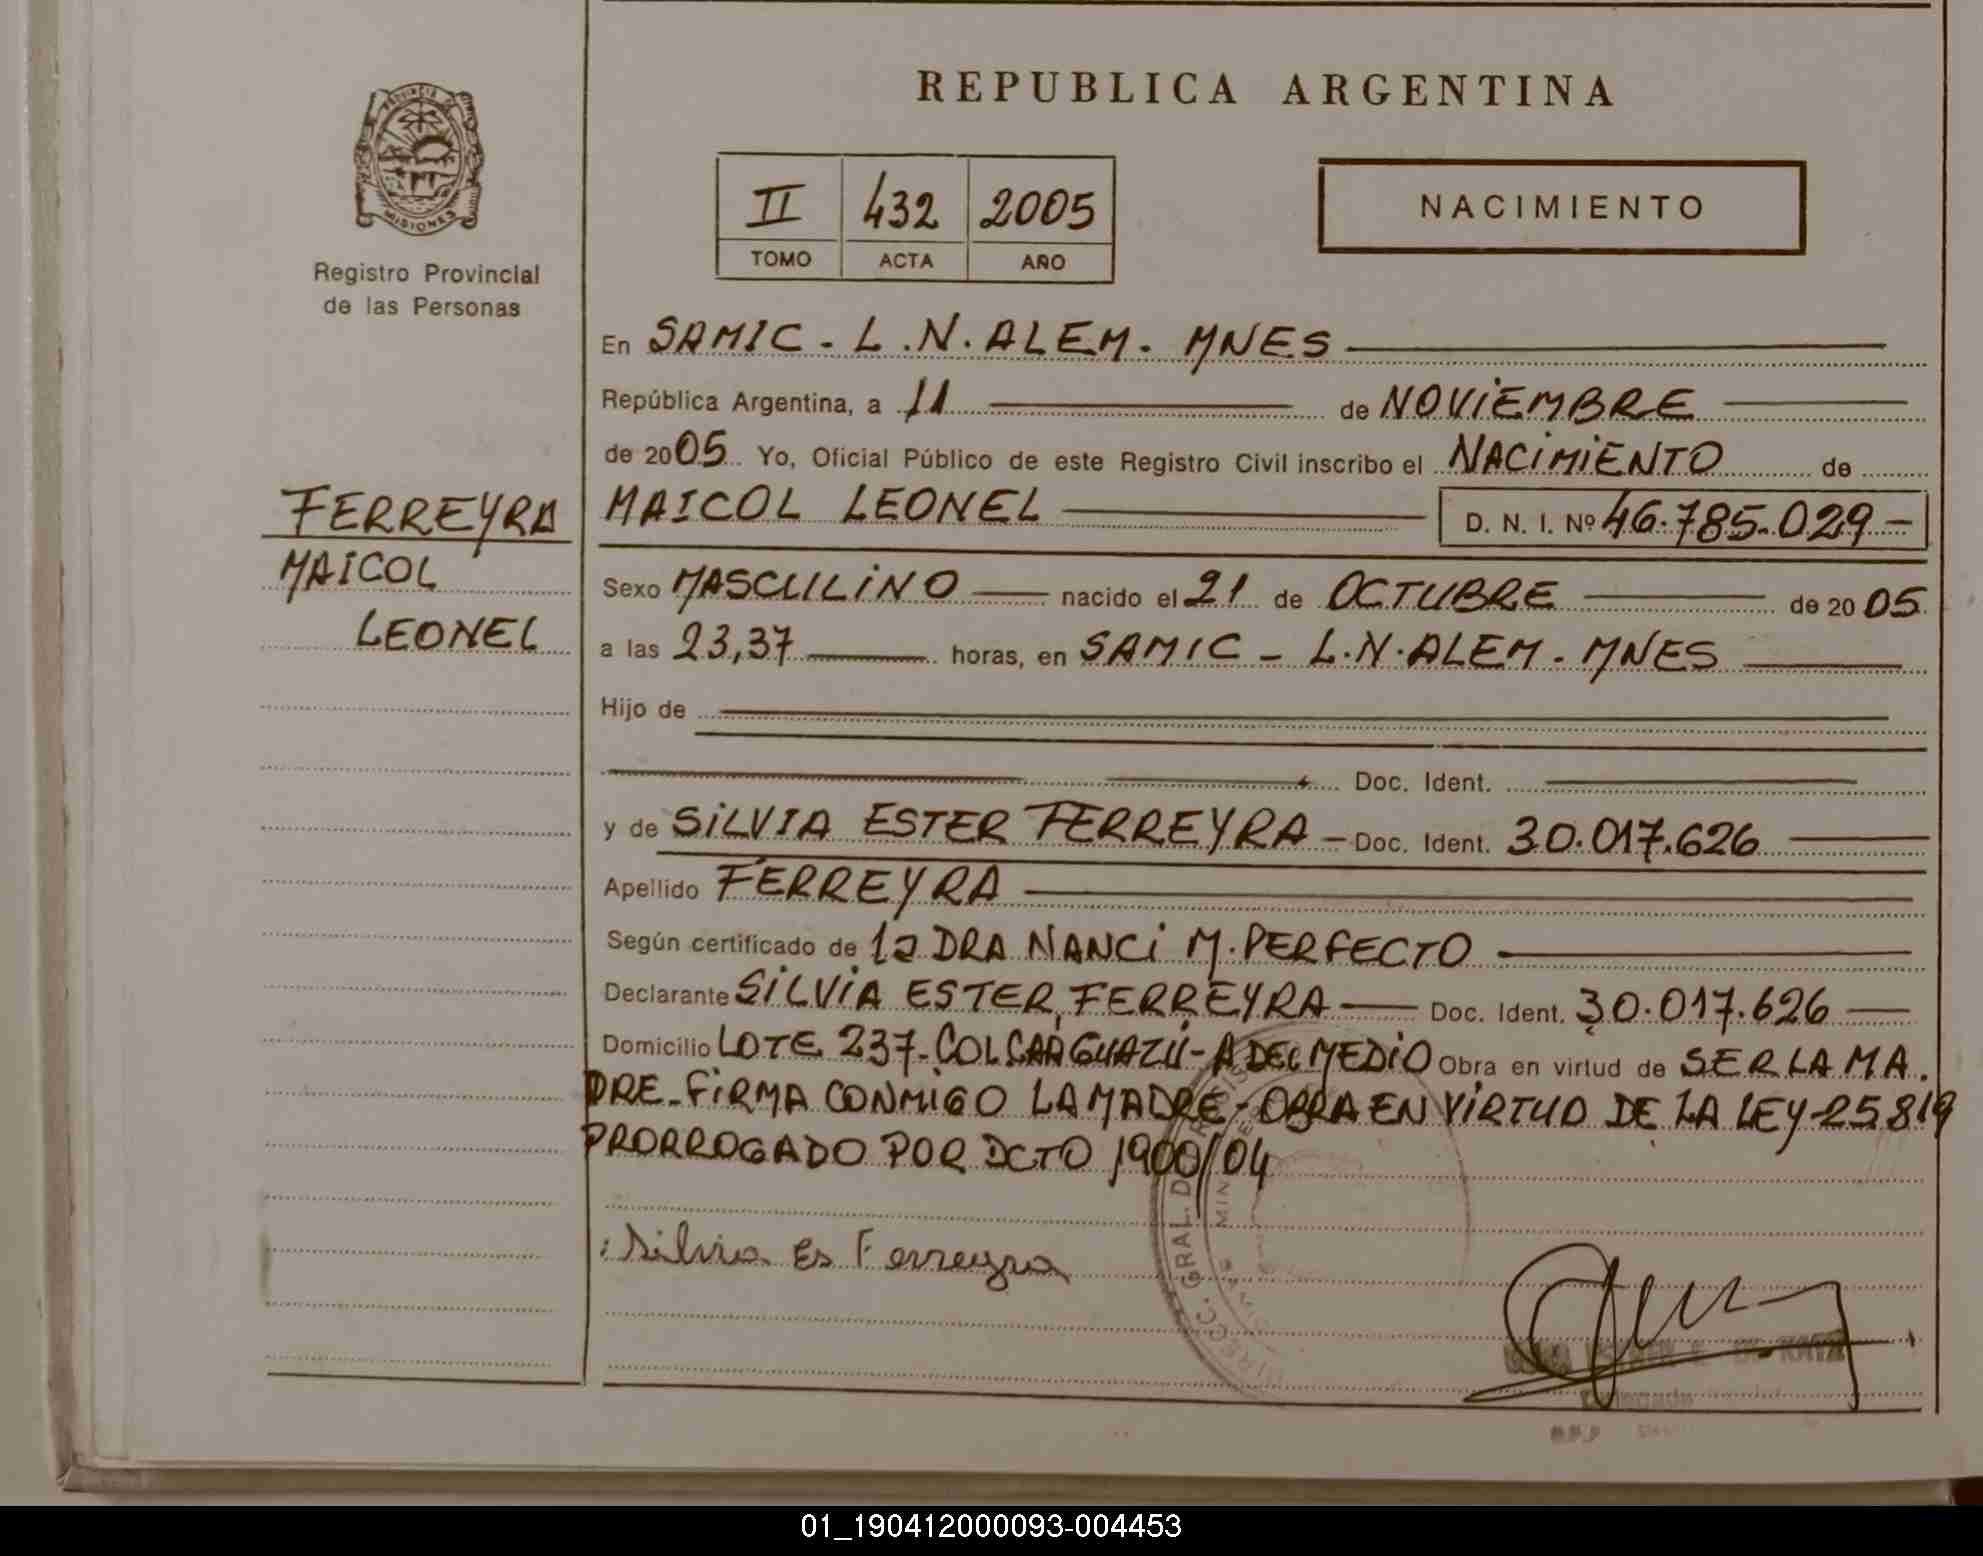 REPUBLICA ARGENTINA
PROVINCIA DE
MISIONES
Registro Provincial
de las Personas
II 432 2005
TOMO ACTA AÑO
NACIMIENTO
En SAMIC - L.N. ALEM. MNES
República Argentina, a 11 de NOVIEMBRE
de 2005 Yo, Oficial Público de este Registro Civil inscribo el NACIMIENTO de
FERREYRA
MAICOL
LEONEL
MAICOL LEONEL D. N. I. Nº 46.785.029-
Sexo MASCULINO nacido el 21 de OCTUBRE de 2005
a las 23,37 horas, en SAMIC - L.N. ALEM. MNES
Hijo de
Doc. Ident.
y de SILVIA ESTER FERREYRA - Doc. Ident. 30.017.626
Apellido FERREYRA
Según certificado de la DRA NANCI M. PERFECTO
Declarante SILVIA ESTER FERREYRA Doc. Ident. 30.017.626
Domicilio LOTE 237-COL CAAGUAZÚ-A DEL MEDIO Obra en virtud de SER LA MA.
DRE-FIRMA CONMIGO LA MADRE-OBRA EN VIRTUD DE LA LEY 25.819
PRORROGADO POR DCTO 1900/04
Silvia Es Ferreyra
DIRECC. GRAL. D
01_190412000093-004453